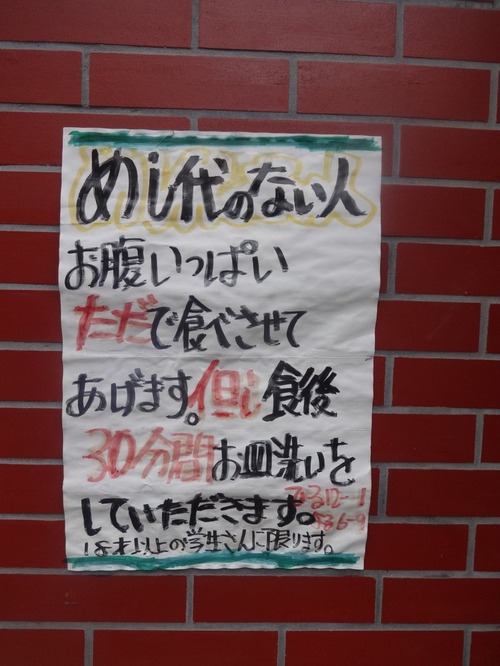 めし代のない人
お腹いっぱい
ただで食べさせて
あげます。但し食後
30分間お皿洗いを
していただきます。
12-1
6-9
18才以上の学生さんに限ります。